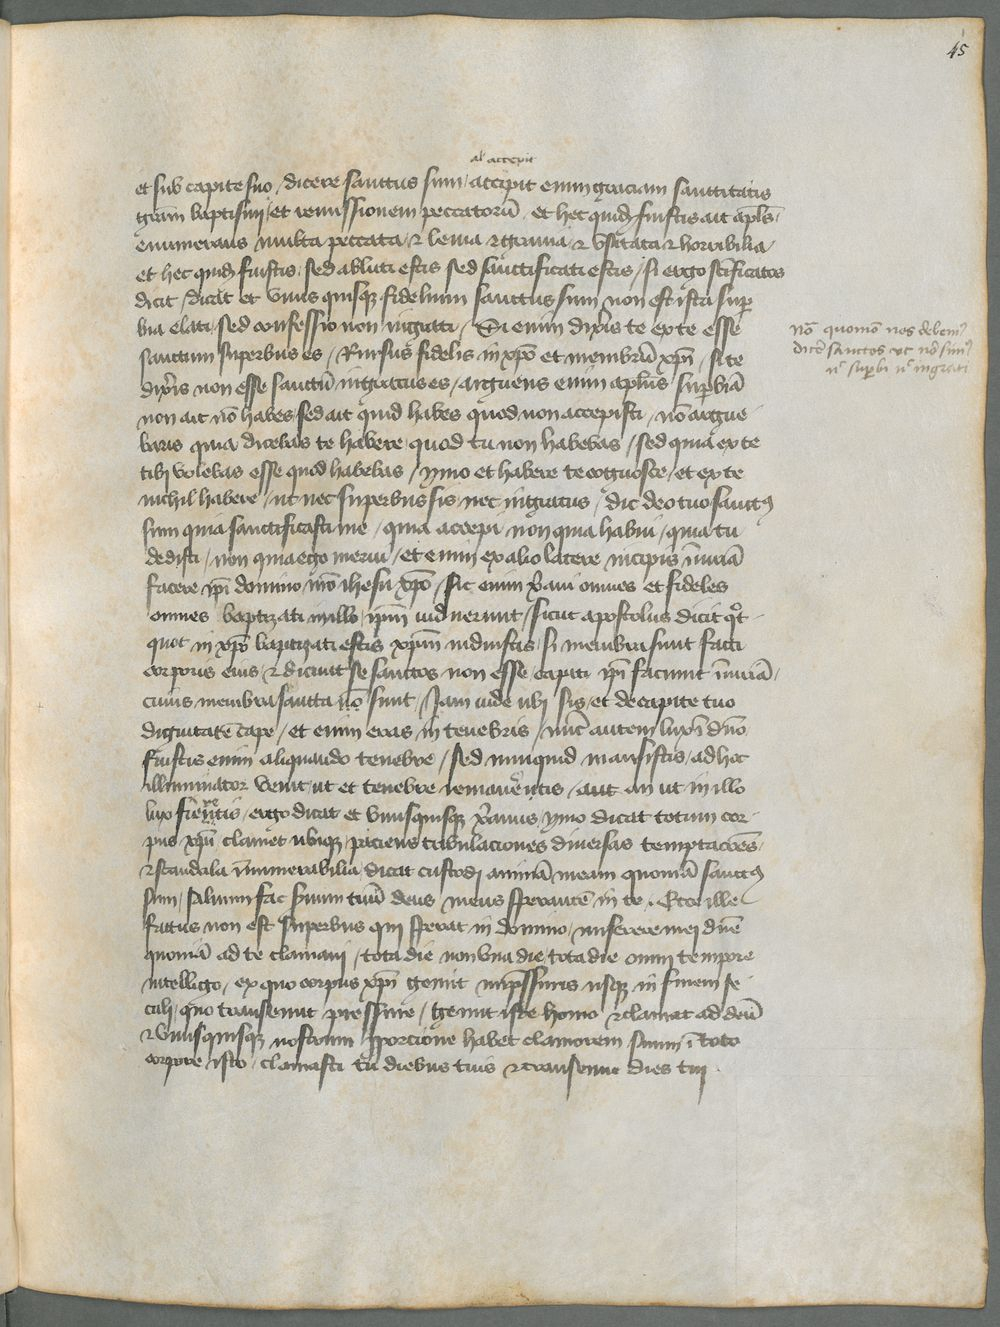 45
al' accepit
et sub capite suo / dicere sanctus sum / accipit enim graciam sanctitatis
grām baptismi / et remissionem peccatorū . et hec quidē fuistis ait apl̄s /
enumerans multa peccata / & leuia & grauia / & vsitata & horribilia /
et hec quidē fuistis / sed abluti estis sed sanctificati estis / si ergo sc̄ificatos
dicit / dicat et vnus quisqȝ fidelium sanctus sum non est ista sup
bia elati / sed confessio non ingrati / Si enim dixīs te ex te esse
sanctum superbus es / Rursus fidelis in xp̄o et membrū xp̄i / si te
dixīs non esse sanctū ingratus es / arguens enim apl̄us / supbiā
non ait nō habes / sed ait quid habes quod non accepisti / nō argue
baris quia dicebas te habere quod tu non habebas / sed quia ex te
tibi volebas esse quod habebas / ymo et habere te cognosce / et ex te
nichil habere / ut nec superbus sis nec ingratus / dic deo tuo sanctꝰ
sum quia sanctificasti me / quia accepi non quia habui / quia tu
dedisti / non quia ego merui / et enim ex alio latere incipis īniuriā
facere ip̄i domino nr̄o ihesu xp̄o / sic enim xp̄iani omnes et fideles
omnes baptizati in illo / ip̄m induerunt / sicut apostolus dicit qͦt
quot in xp̄o baptizati estis xp̄um induistis / si membra sunt facti
corporis eius / & dicunt se sanctos non esse / capiti ip̄i faciunt īniuriā /
cuius membra sancta nō sunt / Jam uide ubi sis / et de capite tuo
dignitatē cape / et enim eras in tenebris / nūc autem lux in dn̄o
fuistis enim aliquando tenebre / Sed nunquid mansistis / ad hoc
illuminator venit / ut et tenebre remaneretis / aut an ut in illo
lux fieretis / ergo dicat et vnusquisqȝ xp̄ianus / ymo dicat totum cor
pus xp̄i / clamet ubiqȝ / paciens tribulaciones diuersas temptacōēs /
& scandala īnumerabilia / dicat custodi animā meam quoniā sanctꝰ
sum / saluum fac seruum tuū deus meus sperantē in te . Ecce ille
sanctus non est superbus qui sperat in domino / miserere mei dn̄e
quoniā ad te clamaui / tota die non vna die / tota die omni tempore
intelligo / ex quo corpus xp̄i gemit in pressuris usqȝ in finem se
culi / quo transeunt pressure / gemit iste homo & clamat ad deū
& vnusquisqȝ nostrum pporcione habet clamorem suum ī toto
corpore isto / clamasti tu diebus tuis & transierunt dies tui .
Nō quomō nos debemꝰ
dicē sanctos vt nō simꝰ
nͨ supbi nͨ ingrati